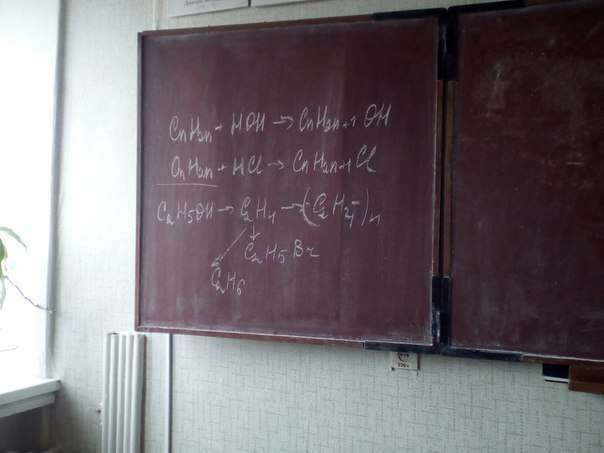 CnH2n + HOH → CnH2n+1 OH
CnH2n + HCl → CnH2n+1 Cl
C2H5OH → C2H4 → (-C2H4-)n
C2H5Br
C2H6